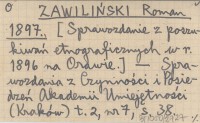 ZAWILIŃSKI Roman
1897. [Sprawozdanie z poszu-
kiwań etnograficznych w r.
1896 na Orawie.] — Spra-
wozdania z Czynności i Posie-
dzeń Akademii Umiejętności
(Kraków) t. 2, nr 7, s. 38.